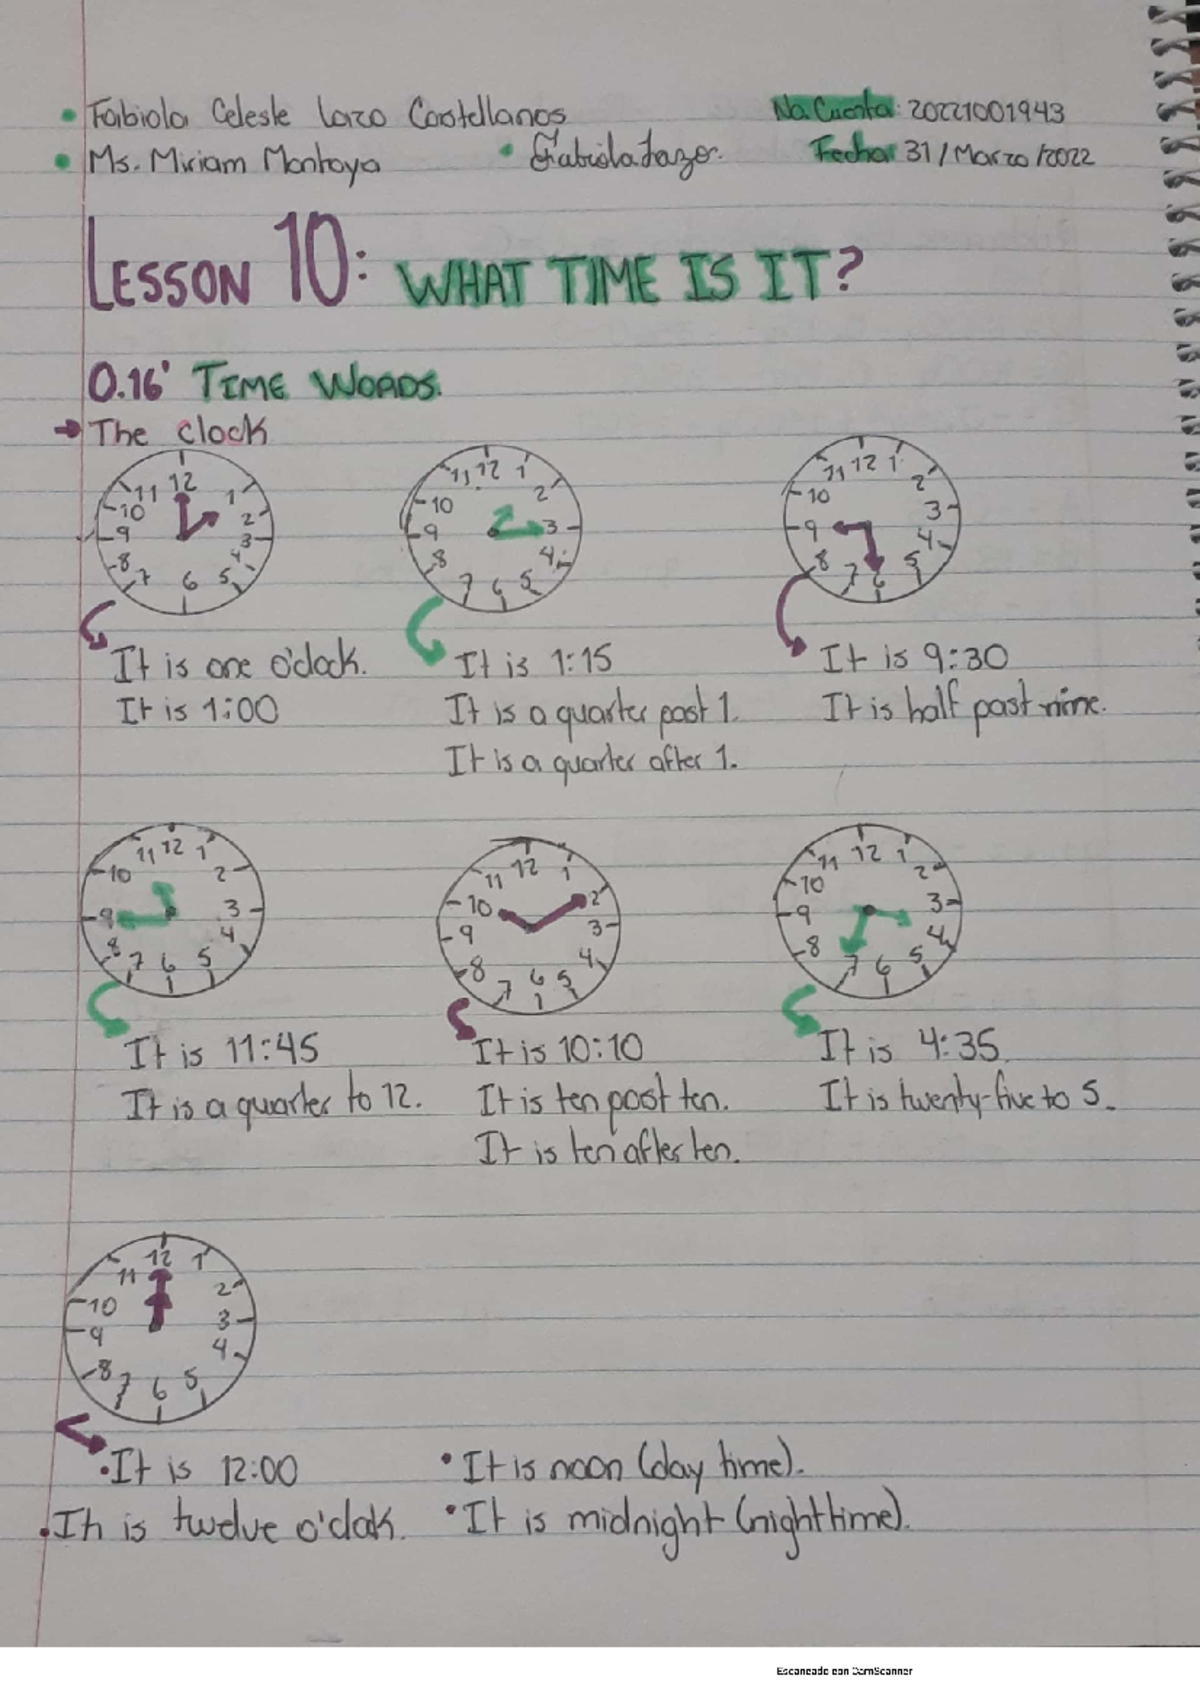 • Fabiola Celeste Lazo Castellanos No. Cuenta: 20221001943
• Ms. Miriam Montoya • FabiolaLazo. Fecha: 31/Marzo/2022
LESSON 10: WHAT TIME IS IT?
0.16' TIME WORDS.
→ The clock
12 1 2 3 4 5 6 7 8 9 10 11
12 1 2 3 4 5 6 7 8 9 10 11
12 1 2 3 4 5 6 7 8 9 10 11
It is one o'clock. It is 1:15 It is 9:30
It is 1:00 It is a quarter past 1. It is half past nine.
It is a quarter after 1.
12 1 2 3 4 5 6 7 8 9 10 11
12 1 2 3 4 5 6 7 8 9 10 11
12 1 2 3 4 5 6 7 8 9 10 11
It is 11:45 It is 10:10 It is 4:35.
It is a quarter to 12. It is ten past ten. It is twenty-five to 5.
It is ten after ten.
12 1 2 3 4 5 6 7 8 9 10 11
• It is 12:00 • It is noon (day time).
• Ih is twelve o'clok. • It is midnight (nighttime).
Escaneado con CamScanner